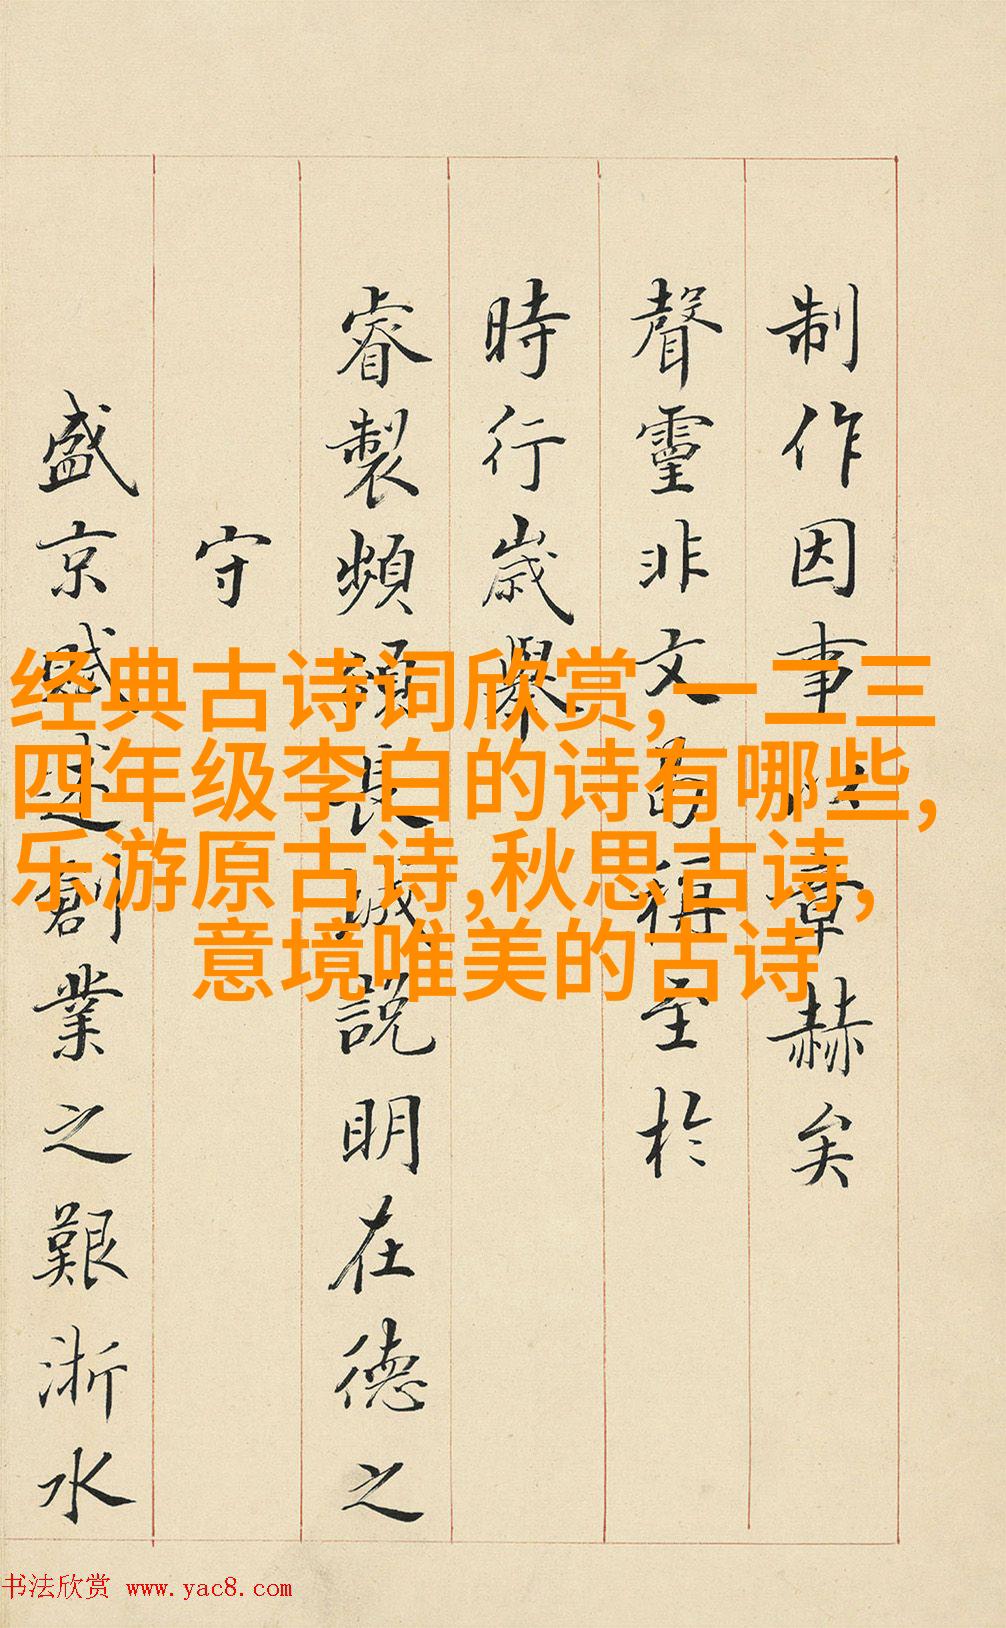 经典古诗词欣赏,一二三
四年级李白的诗有哪些,
乐游原古诗,秋思古诗,
意境唯美的古诗
制作因事以章赫矣
聲靈非文曷稱至於
時行歲舉
睿製頻長城說明在德之
守
盛京賦述創業之艱浙水
书法欣赏 www.yac8.com